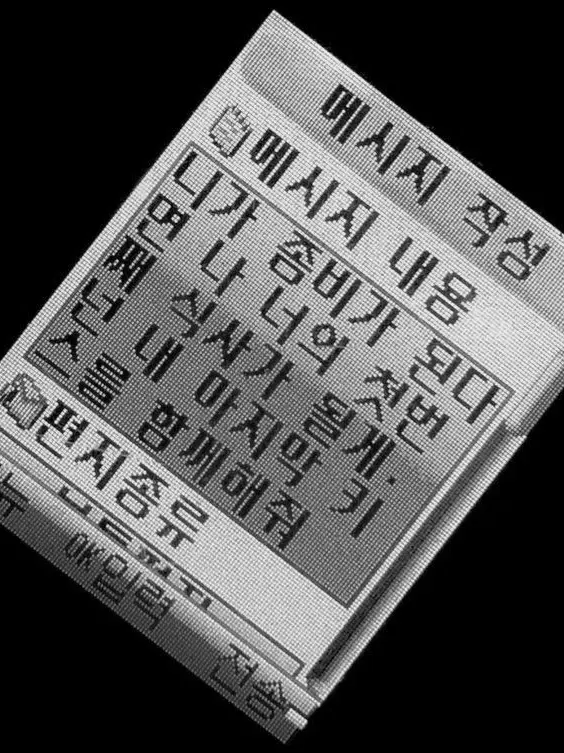 메시지 작성
메시지 내용
니가 좀비가 된다
면 나 너의 첫번
째 식사가 될게.
넌 내 마지막 키
스를 함께해줘
편지종류
OK입력
전송